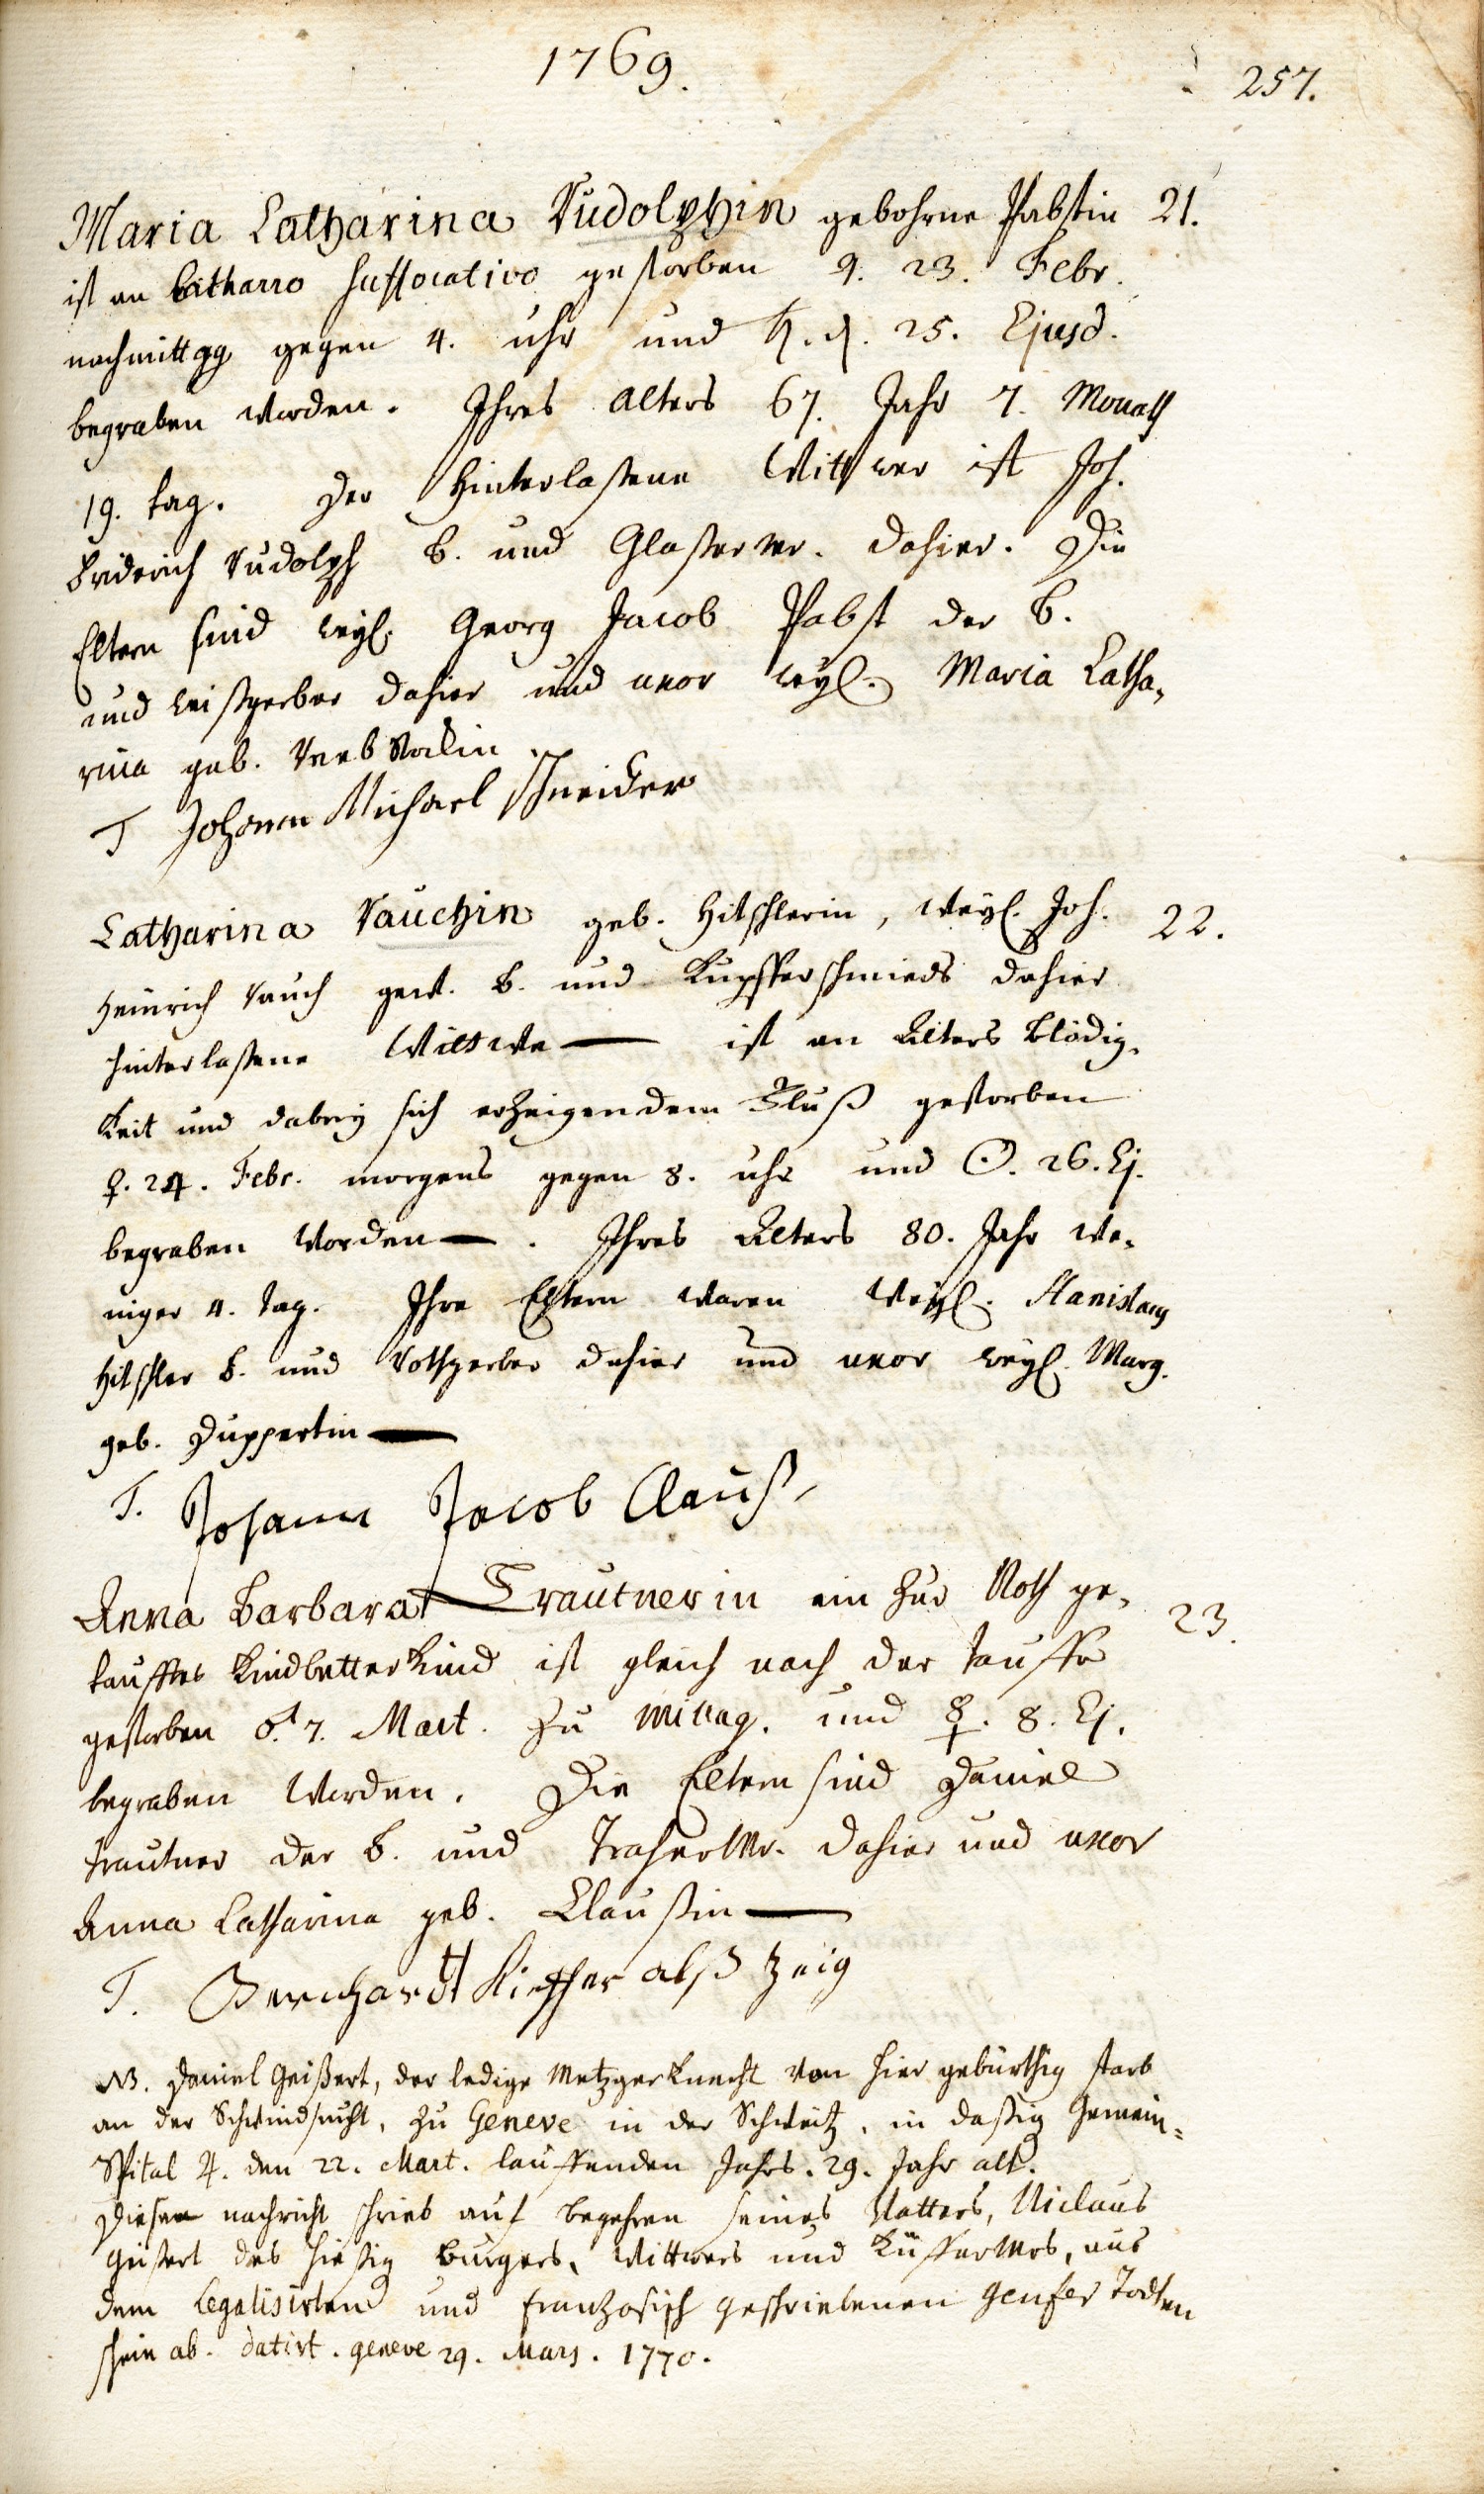 1769.
257.
Maria Catharina Rudolphin gebohrne Pabstin 21.
ist an Catharro suffocativo gestorben 4. 23. Febr.
nachmittag gegen 4. uhr und ♄. d. 25. Ejusd.
begraben worden. Ihres Alters 67. Jahr 7. Monath
19. tag. Der hinterlaßene Wittwer ist Joh.
Friderich Rudolph b. und Glaßer Mr. dahier. Die
Eltern sind weyl. Georg Jacob Pabst der b.
und weißgerber dahier und uxor weyl. Maria Catha,
rina geb.
T Johann Michael Schneider
Catharina Rauchin geb. Hitschlerin, weyl. Joh. 22.
Heinrich Rauch gew. b. und Kupfferschmieds dahier
hinterlaßene Wittwe — ist an Alters blödig,
keit und dabey sich erzeigendem Fluß gestorben
♀. 24. Febr. morgens gegen 8. uhr und ☉. 26. Ej.
begraben worden —. Ihres Alters 80. Jahr we,
niger 4. tag. Ihre Eltern waren weyl. Stanislaus
Hitschler b. und Rothgerber dahier und uxor weyl. Marg.
geb. Duppertin —
T. Johann Jacob Clauß
Anna Barbara Trautnerin ein zur Noth ge, 23.
taufftes Kindbetterkind ist gleich nach der Tauffe
gestorben ♂. 7. Mart. zu mittag. und ☿. 8. Ej.
begraben worden. Die Eltern sind Daniel
Trautner der b. und Mr. dahier und uxor
Anna Catharina geb. Claußin —
T. Bernhardt Kieffer alß Zeig
NB. Daniel Geißert, der ledige Metzgerknecht von hier gebürthig starb
an der Schwindsucht, zu Geneve in der Schweitz, in daßig Gemein=
Spital ♃. den 22. Mart. lauffenden Jahrs. 29. Jahr alt.
Diesen nachricht schrieb auf begehren seines Vatters, Niclaus
Geißert des hießig burgers, Wittwers und Küffer Mrs, aus
dem Legalisirten und französisch geschriebenen Genfer Todten
schein ab. datirt. geneve 29. Mars. 1770.